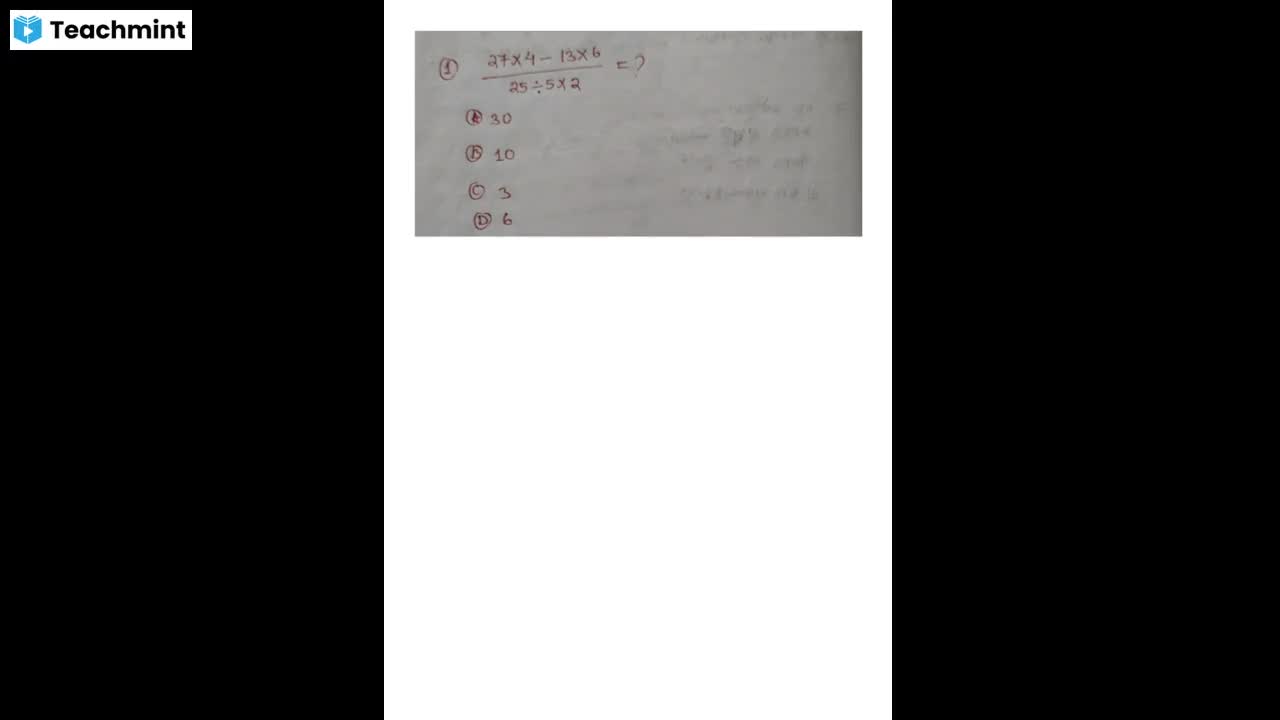 Teachmint
① 27×4 - 13×6 = ?
25÷5×2
Ⓐ 30
Ⓑ 10
Ⓒ 3
Ⓓ 6